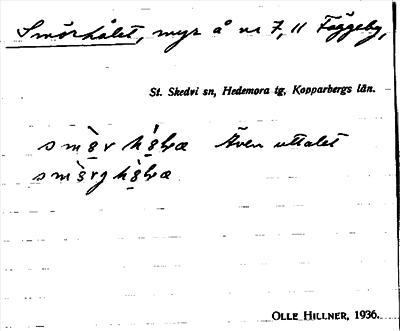 Smörhålet, myr å nr 7, 11 Fäggeby,
St. Skedvi sn, Hedemora tg, Kopparbergs län.
Även uttalet
OLLE HILLNER, 1936.